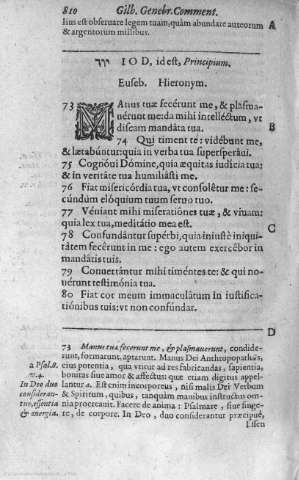 810 Gilb. Genebr. Comment.
lius est obseruare legem tuam, quàm abundare auteorum A
& argentorum millibus.
יוד I O D, id est, Principium.
Euseb. Hieronym.
73 MAnus tuæ fecérunt me, & plasma-
uérunt me: da mihi intelléctum, vt
discam mandáta tua. B
74 Qui timent te: vidébunt me,
& lætabúntur: quia in verba tua supersperáui.
75 Cognóui Dómine, quia æquitas iudicia tua:
& in veritáte tua humiliásti me.
76 Fiat misericórdia tua, vt consolétur me: se-
cúndùm elóquium tuum seruo tuo.
77 Véniant mihi miseratiónes tuæ, & viuam:
quia lex tua, meditátio mea est. C
78 Confundántur supérbi, quia iniustè iniqui-
tátem fecérunt in me: ego autem exercébor in
mandátis tuis.
79 Conuertántur mihi timéntes te: & qui no-
uérunt testimónia tua.
80 Fiat cor meum immaculátum in iustifica-
tiónibus tuis: vt non confundar.
D
73 Manus tuæ fecerunt me, & plasmauerunt, condide-
runt, formarunt, aptarunt. Manus Dei Anthropopathῶs,
a Psal. 8. eius potentia, qua vtitur ad res fabricandas, sapientia,
v. 4. bonitas siue amor & affectus: quæ etiam digitus appel-
In Deo duo lantur a. Est enim incorporeus, nisi malis Dei Verbum
consideran- & Spiritum, quibus, tanquàm manibus instructus om-
tur, essentia nia procreauit. Facere de anima: Psalmare, siue finge-
& energia. re, de corpore. In Deo, duo considerantur præcipuè,